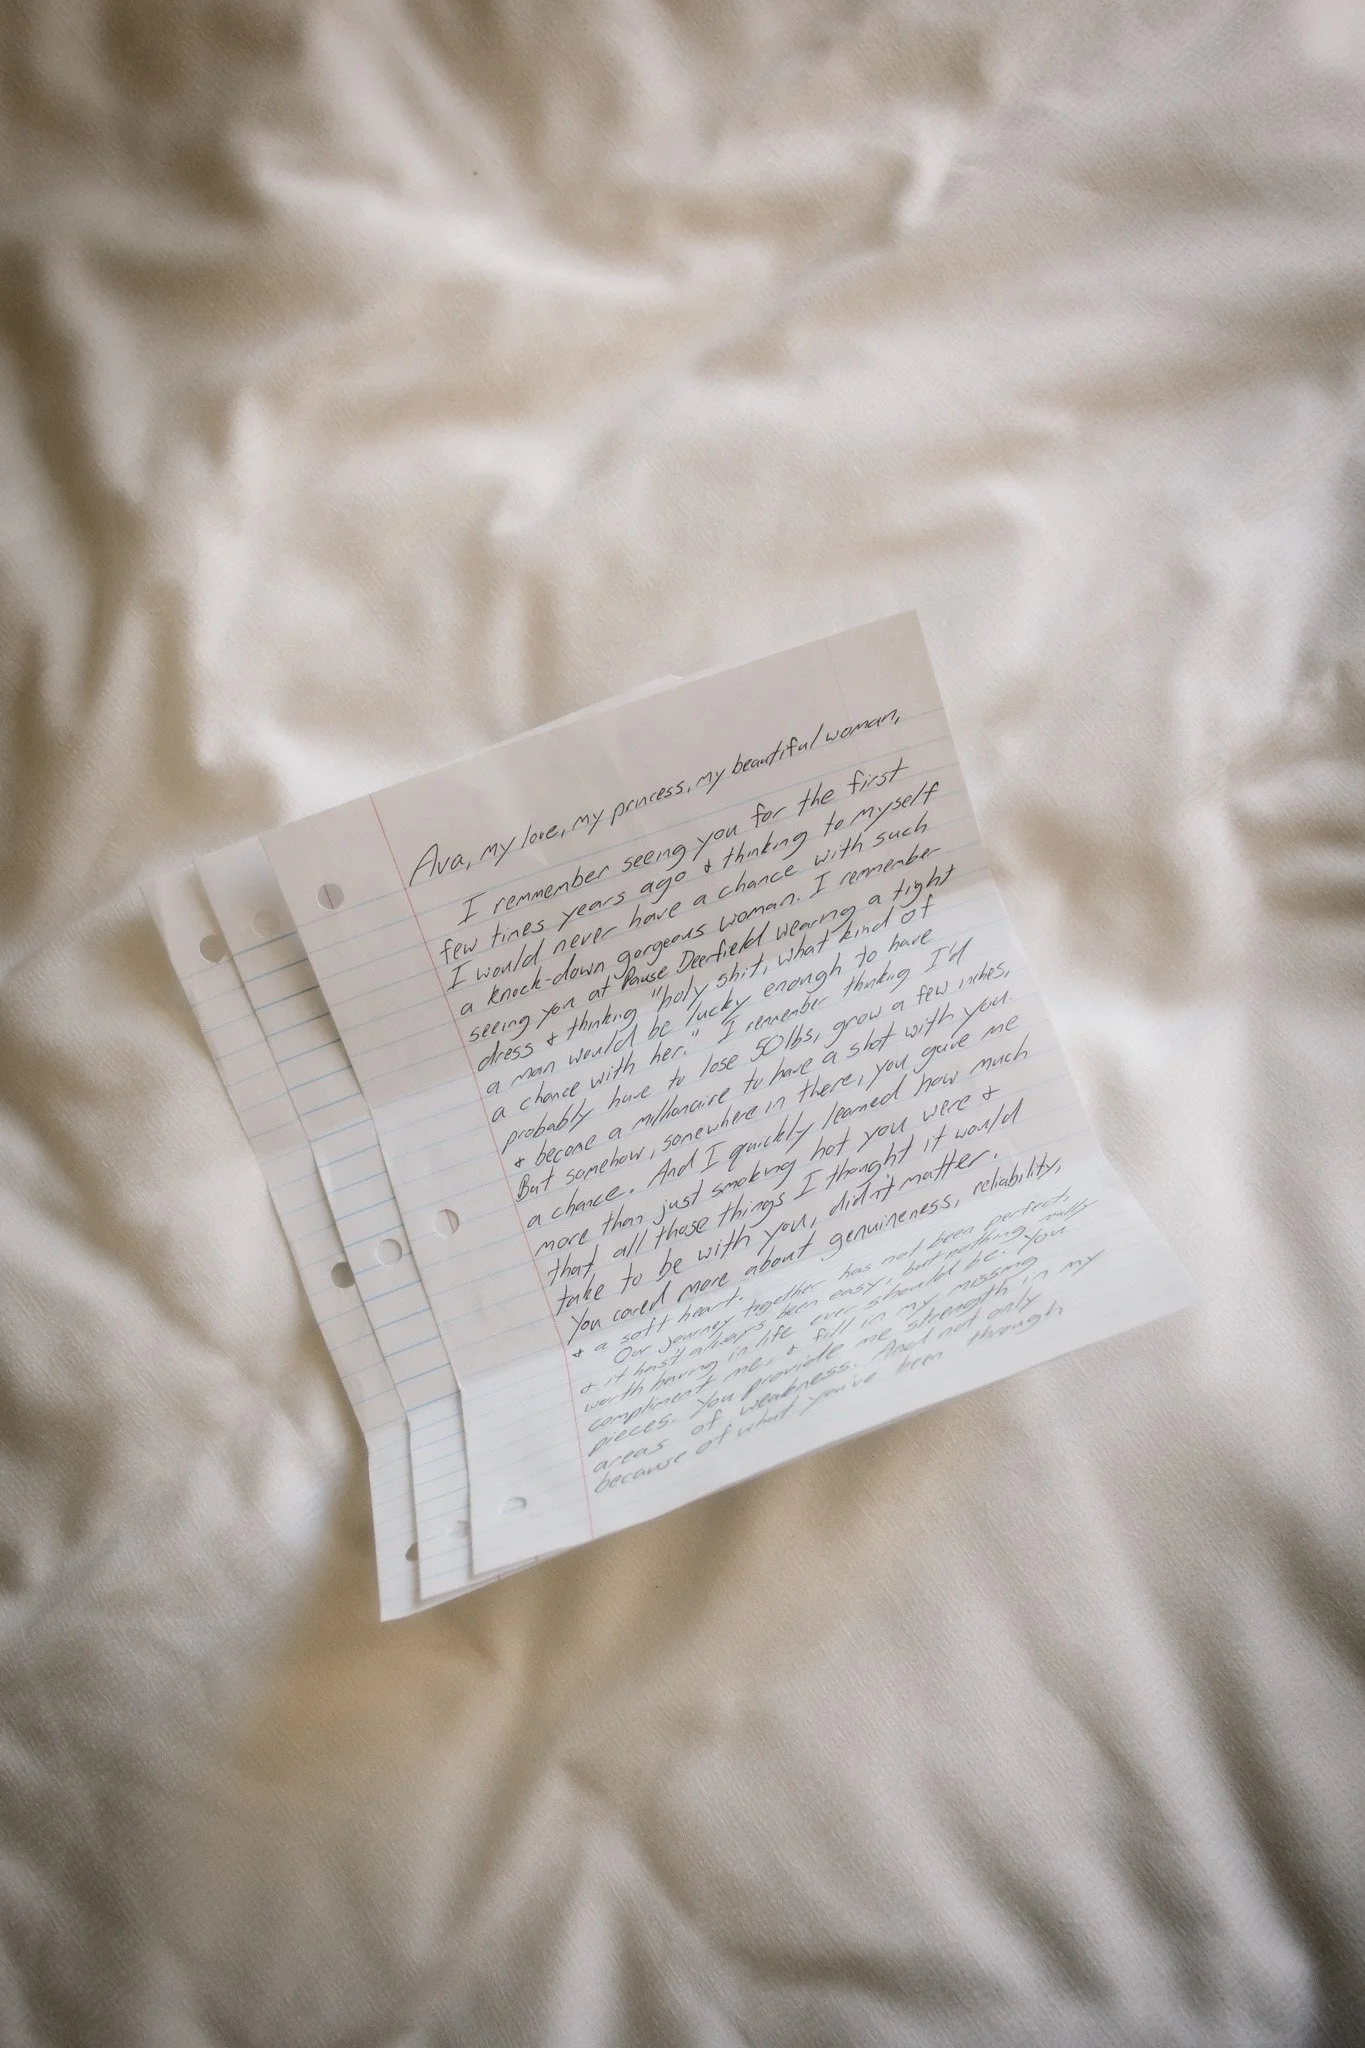 Ava, my love, my princess, my beautiful woman,
I remember seeing you for the first
few times years ago & thinking to myself
I would never have a chance with such
a knock-down gorgeous woman. I remember
seeing you at Pause Deerfield wearing a tight
dress & thinking "holy shit, what kind of
a man would be lucky enough to have
a chance with her." I remember thinking I'd
probably have to lose 50lbs, grow a few inches,
& become a millionaire to have a shot with you.
But somehow, somewhere in there, you gave me
a chance. And I quickly learned how much
more than just smoking hot you were &
that all those things I thought it would
take to be with you, didn't matter.
You cared more about genuineness, reliability,
& a soft heart.
Our journey together has not been perfect
& it hasn't always been easy, but nothing really
worth having in life ever should be. You
compliment me, & fill in my missing
pieces. You provide me strength in my
areas of weakness. And not only
because of what you've been through